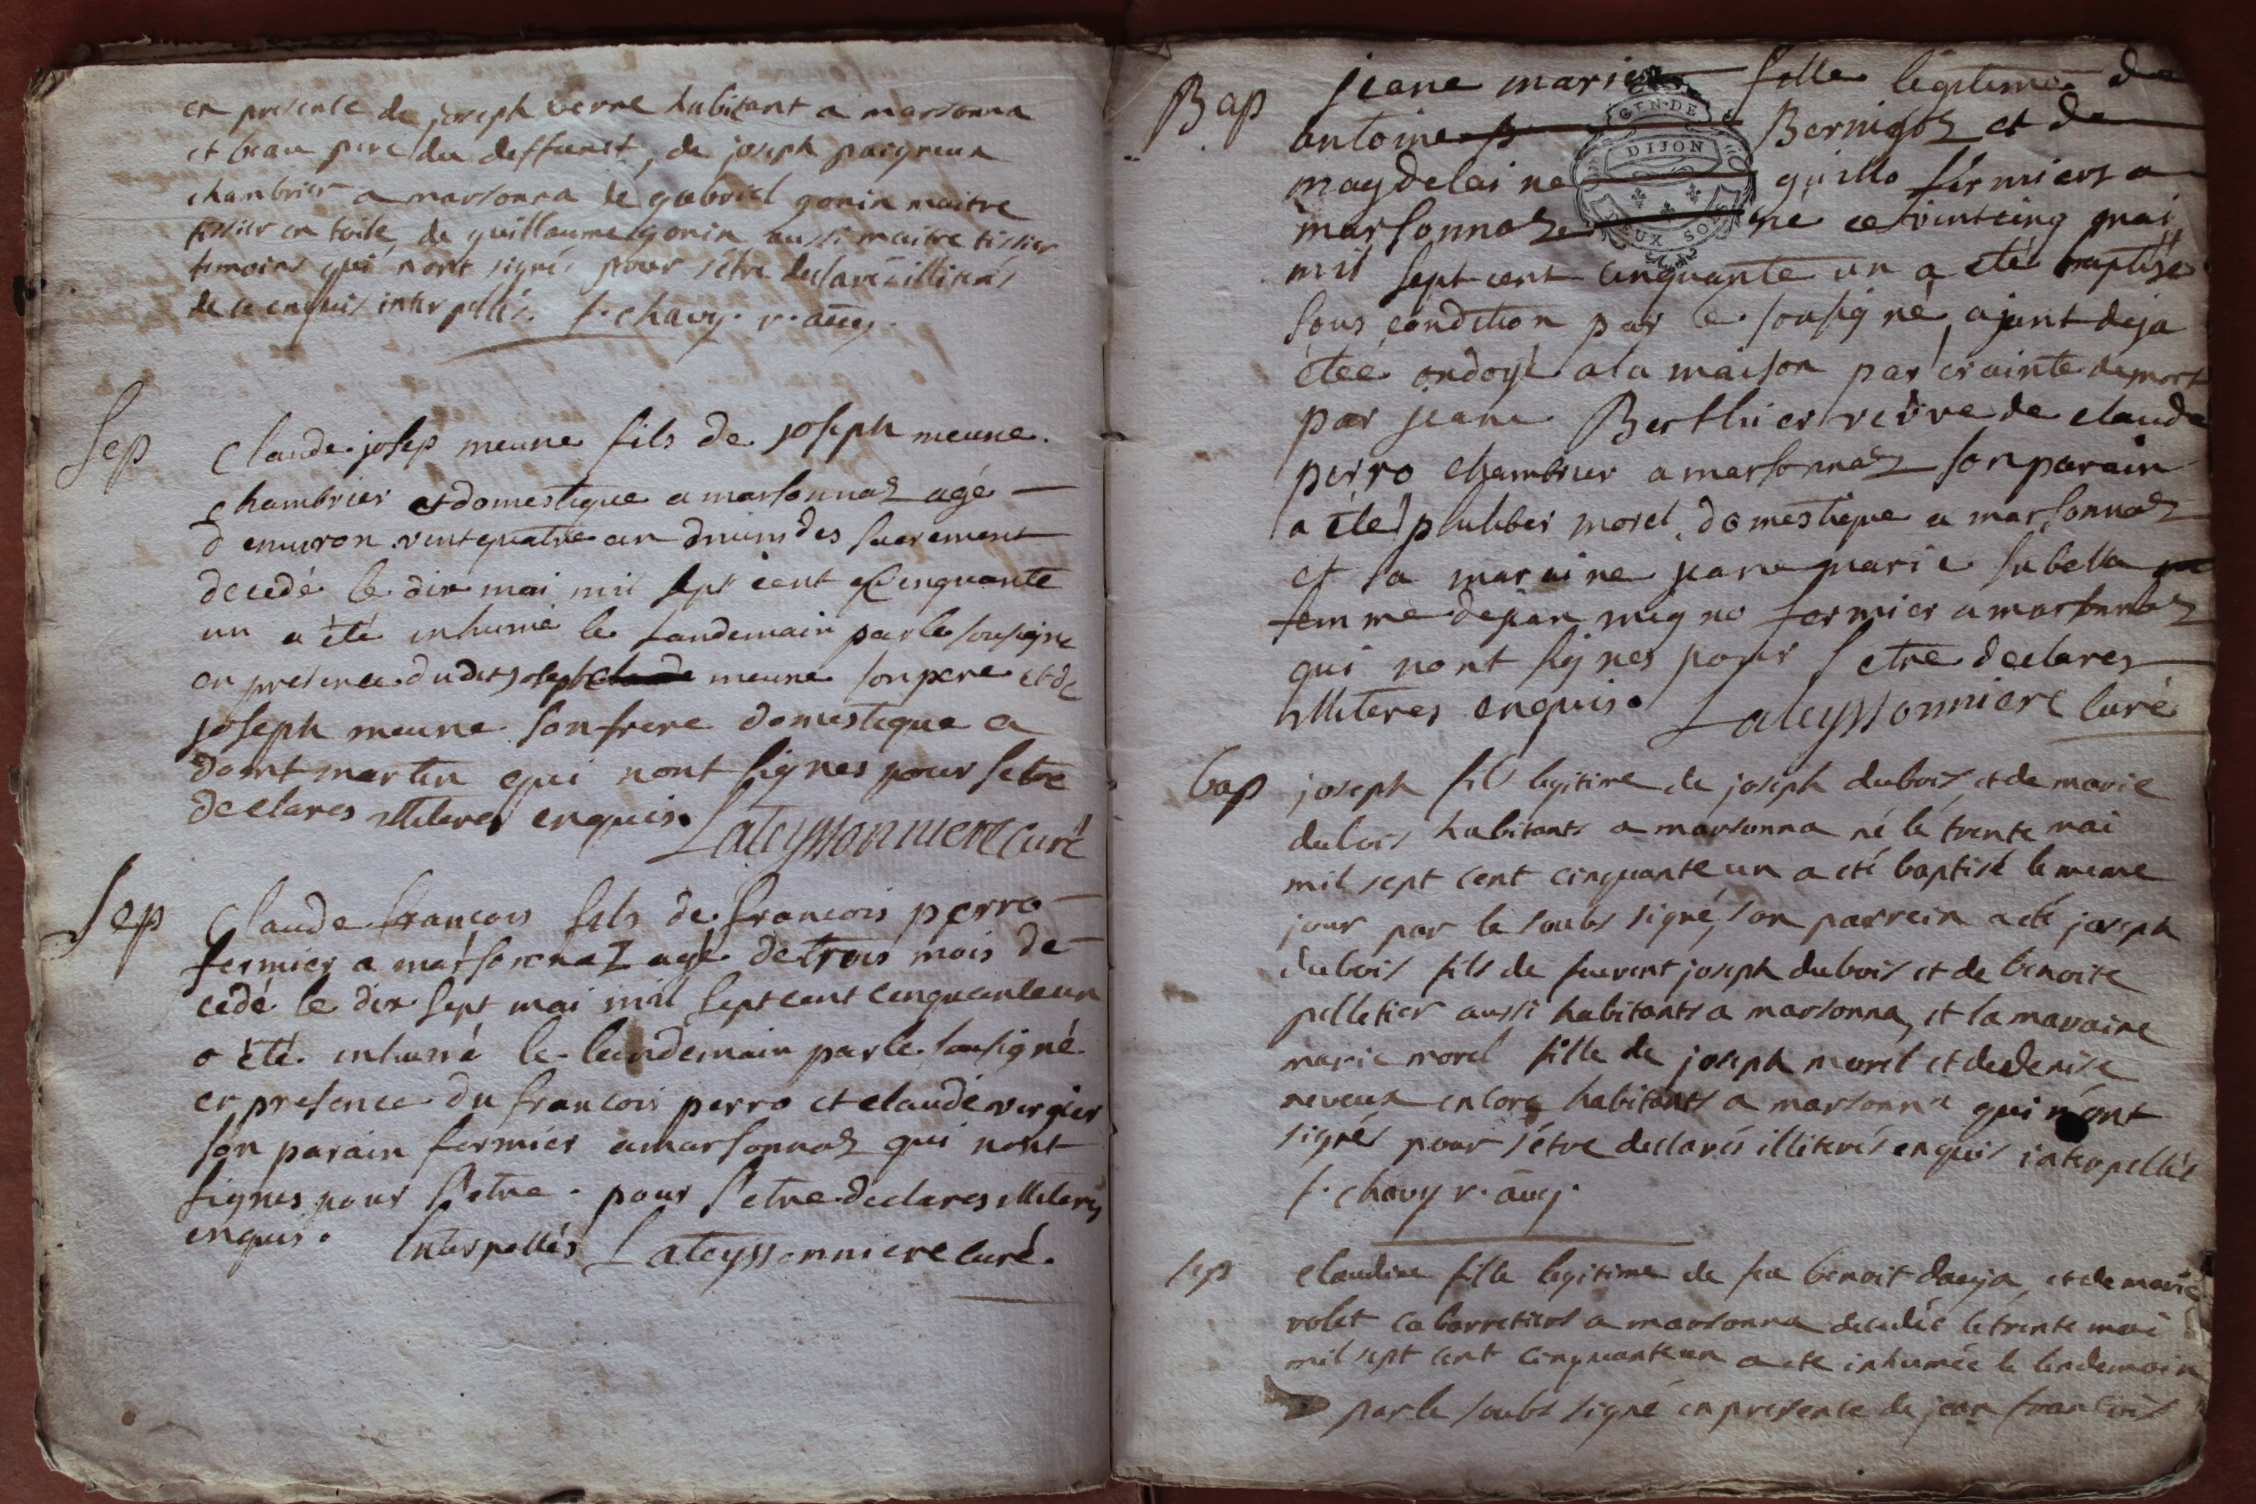 en presence de joseph verne habitant a marsonna
et beau pere du deffunct, de joseph paigneux
chambrier a marsonna de gabriel gonin maitre
tissier en toile, de guillaume gonin aussi maitre tissier
temoins qui n'ont signés pour s'étre declarés illiterés
de ce enquis interpellés. f. chavy. v. aucy.
Sep
Claude josep meune fils de joseph meune
chambrier et domestique a marsonnaz agé
d environ vint quatre an muni des sacrement
decedé le dix mai mil sept cent cinquante
un a été inhumé le landemain par le sousigné
en presence dudit joseph meune son pere et de
joseph meune son frere domestique a
domt martin qui nont signes pour setre
declares illiteres enquis. Lateyssonniere curé
Sep
Claude francois fils de francois perro
fermier a marsonnaz agé de trois mois de
cedé le dix sept mai mil sept cent cinquante un
a été inhumé le lendemain par le sousigné
en presence du francois perro et claude vergier
son parain fermier a marsonnaz qui nont
signes pour setre pour setre declares illiteres
enquis. Interpellés Lateyssonniere curé.
Bap
jeane marie fille legitime de
antoine Bernigoz et de
magdelaine guillo fermiers a
marsonnaz né ce vint cinq mai
mil sept cent cinquante un a été baptisé
sous condition par le sousigné, ajant deja
étéé ondoyé a la maison par crainte de mort
par jeane Berthier veuve de claude
perro chambrier a marsonnaz son parain
a été philiber morel domestique a marsonnaz
et sa maraine jeane marie subella
femme de jean migno fermier a marsonnaz
qui nont signes pour setre declares
illiteres enquis. Lateyssonniere curé
GEN. DE
DIJON
DEUX SOLS
bap
joseph fils legitime de joseph dubois et de marie
dubois habitants a marsonna né le trente mai
mil sept cent cinquante un a eté baptisé le meme
jour par le soubs signé, son parrein a eté joseph
dubois fils de joseph dubois et de benoite
pelletier aussi habitants a marsonna, et la maraine
marie morel fille de joseph morel et de denise
neveux encore habitants a marsonna qui n'ont
signés pour s'étre declarés illiterés enquis interpellés
f. chavy v. aucy.
sep
claudine fille legitime de feu benoit dauja et de marie
volet cabarretiers a marsonna decedée le trente mai
mil sept cent cinquante un a eté inhumée le lendemain
par le soubs signé en presence de jean francois